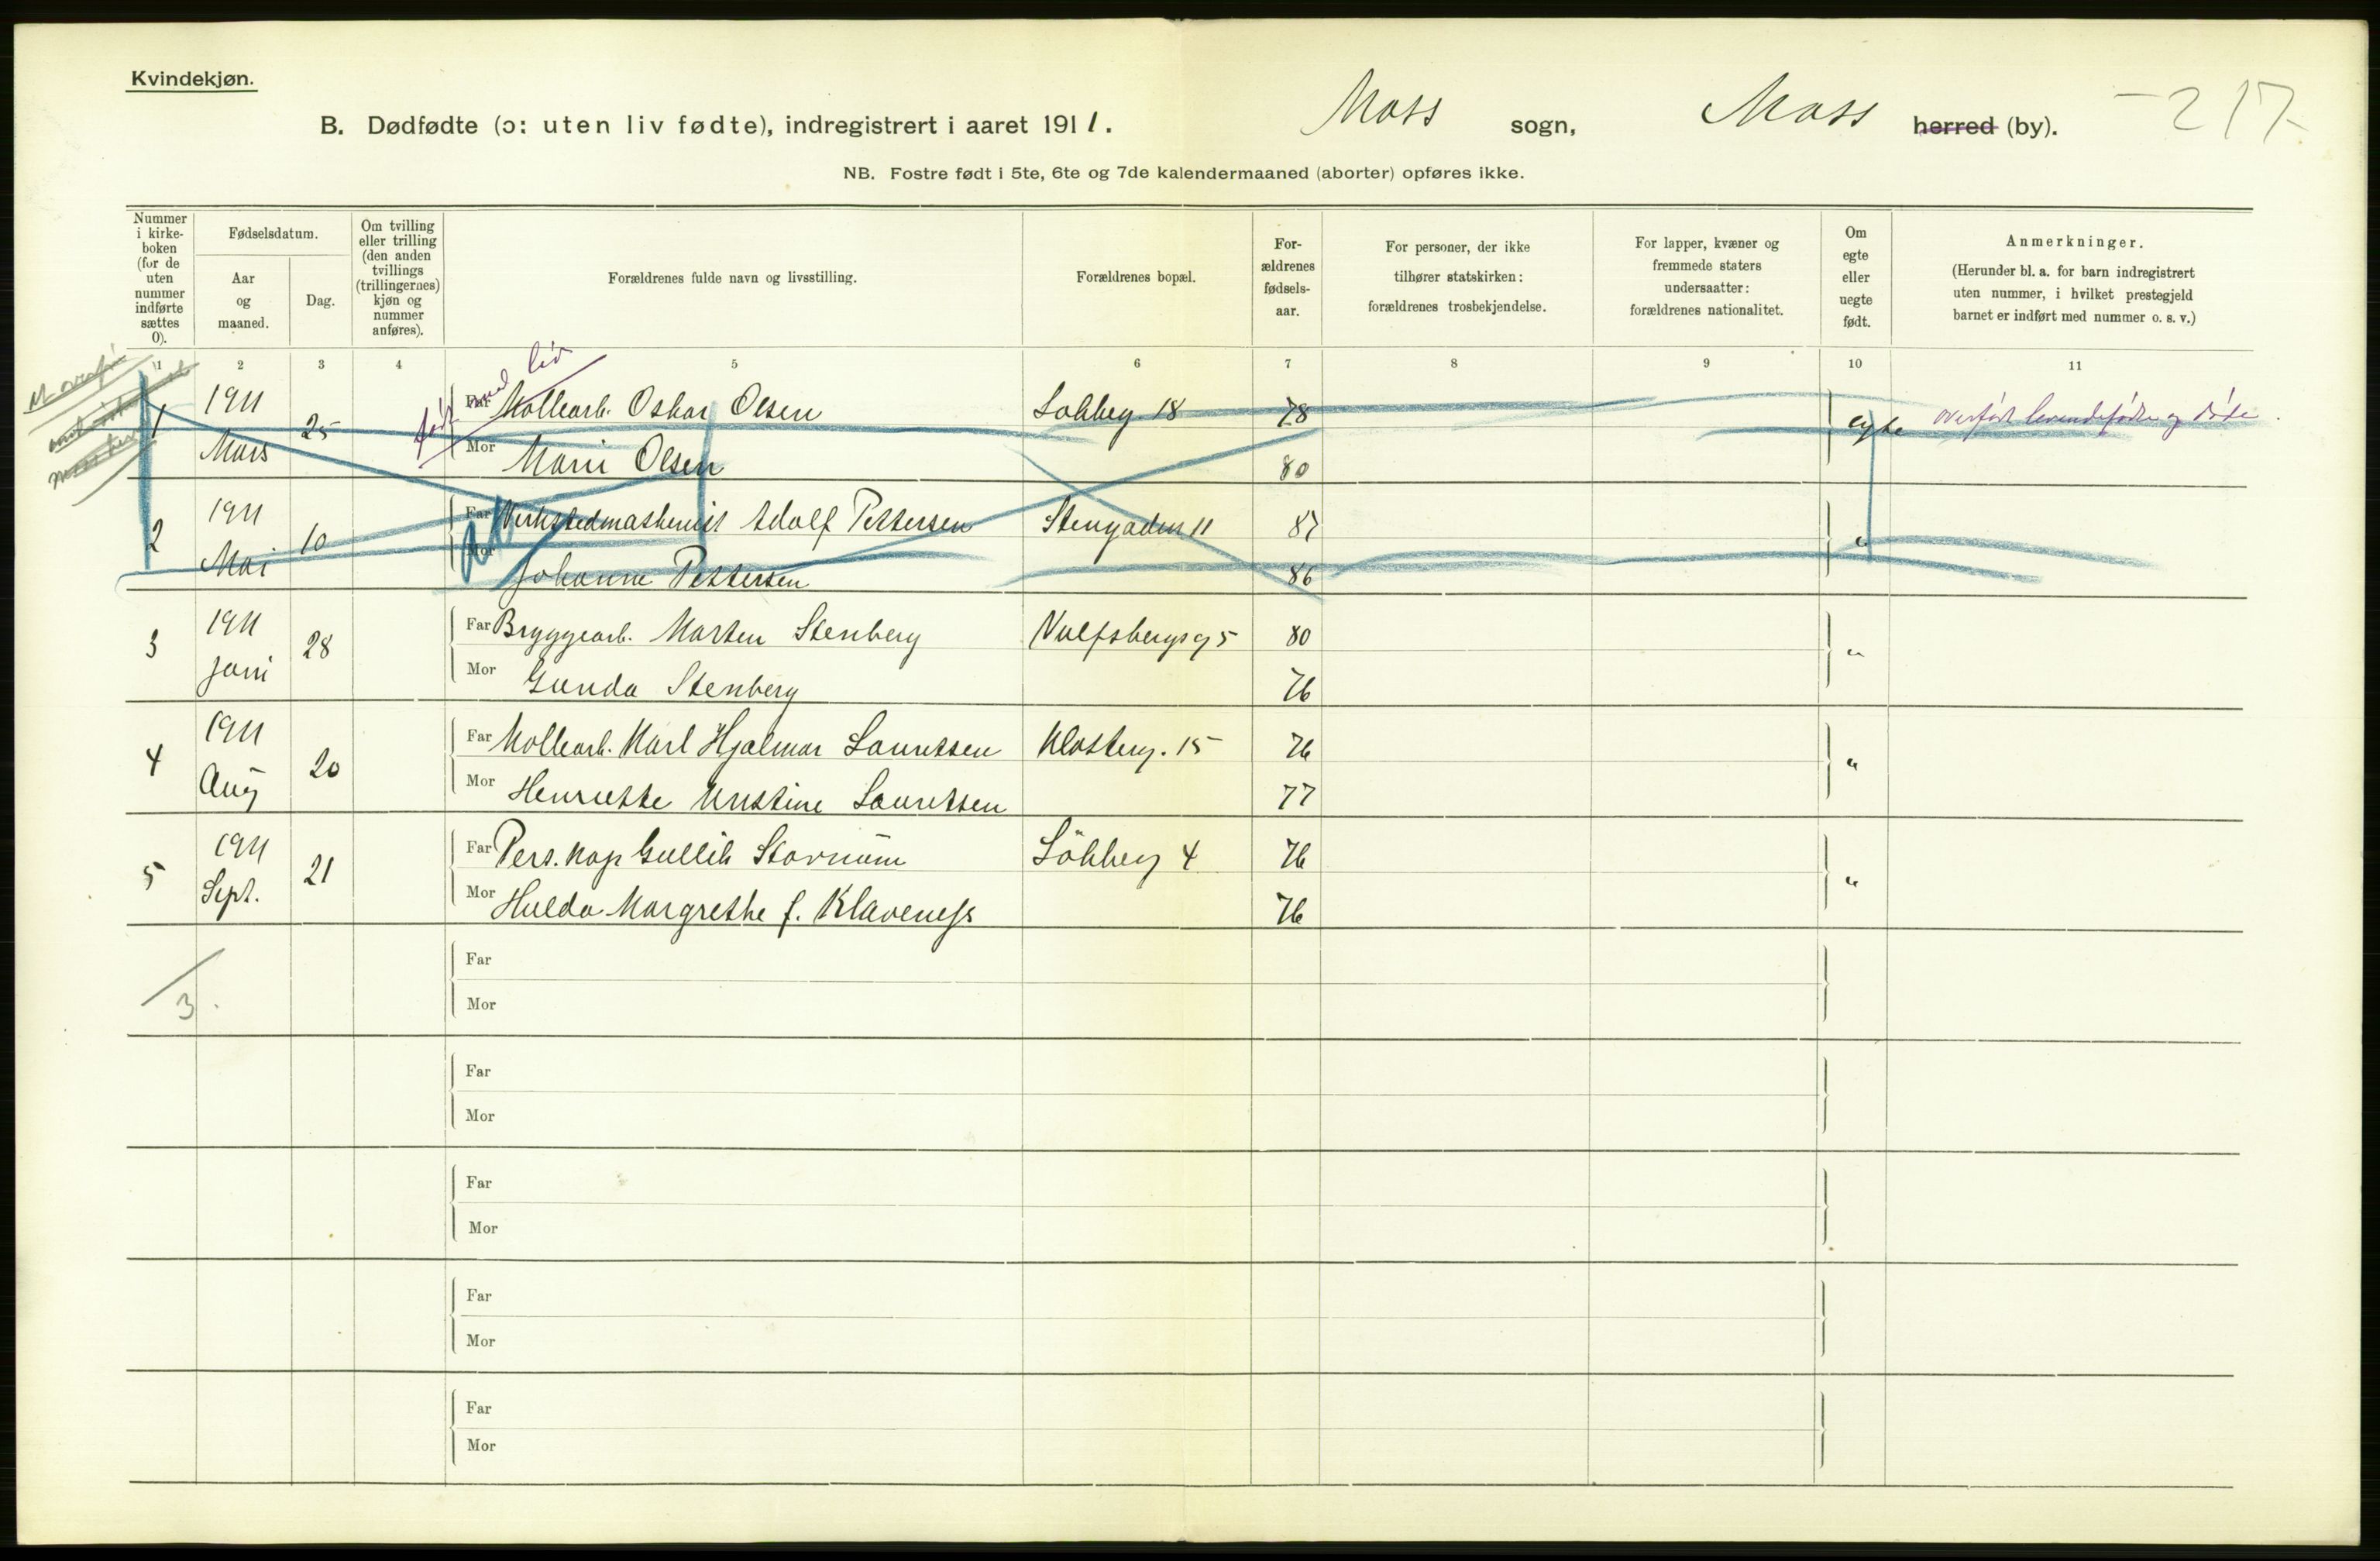 Kvindekjøn.
B. Dødfødte (ɔ: uten liv fødte), indregistrert i aaret 1911. Moss sogn, Moss herred (by). 217
NB. Fostre født i 5te, 6te og 7de kalendermaaned (aborter) opføres ikke.
Nummer i kirke-boken (for de uten nummer indførte sættes 0).
Fødselsdatum.
Aar og maaned.
Dag.
Om tvilling eller trilling (den anden tvillings (trillingernes) kjøn og nummer anføres).
Forældrenes fulde navn og livsstilling.
Forældrenes bopæl.
For-ældrenes fødsels-aar.
For personer, der ikke tilhører statskirken: forældrenes trosbekjendelse.
For lapper, kvæner og fremmede staters undersaatter: forældrenes nationalitet.
Om egte eller uegte født.
Anmerkninger.
(Herunder bl. a. for barn indregistrert uten nummer, i hvilket prestegjeld barnet er indført med nummer o. s. v.)
1 2 3 4 5 6 7 8 9 10 11
født med liv
1 1911 Mars 25 Far Mollearb. Oskar Olsen 18 78 egte overført levendefødte og døde
Mor Marie Olsen 80
2 1911 Mai 10 Far Adolf Pettersen Stengaden 11 87 "
Mor Johanne Pettersen 86
3 1911 Juni 28 Far Bryggearb. Marten Stenberg 5 80 "
Mor Gunda Stenberg 76
4 1911 Aug 20 Far Mollearb. Karl Hjalmar Lauretsen Klosterg. 15 76 "
Mor Henriette Kristine Lauretsen 77
5 1911 Sept. 21 Far Pers. kap Gullik 4 76 "
Mor Hulda Margrethe f. Klaveness 76
3.
Far
Mor
Far
Mor
Far
Mor
Far
Mor
Far
Mor